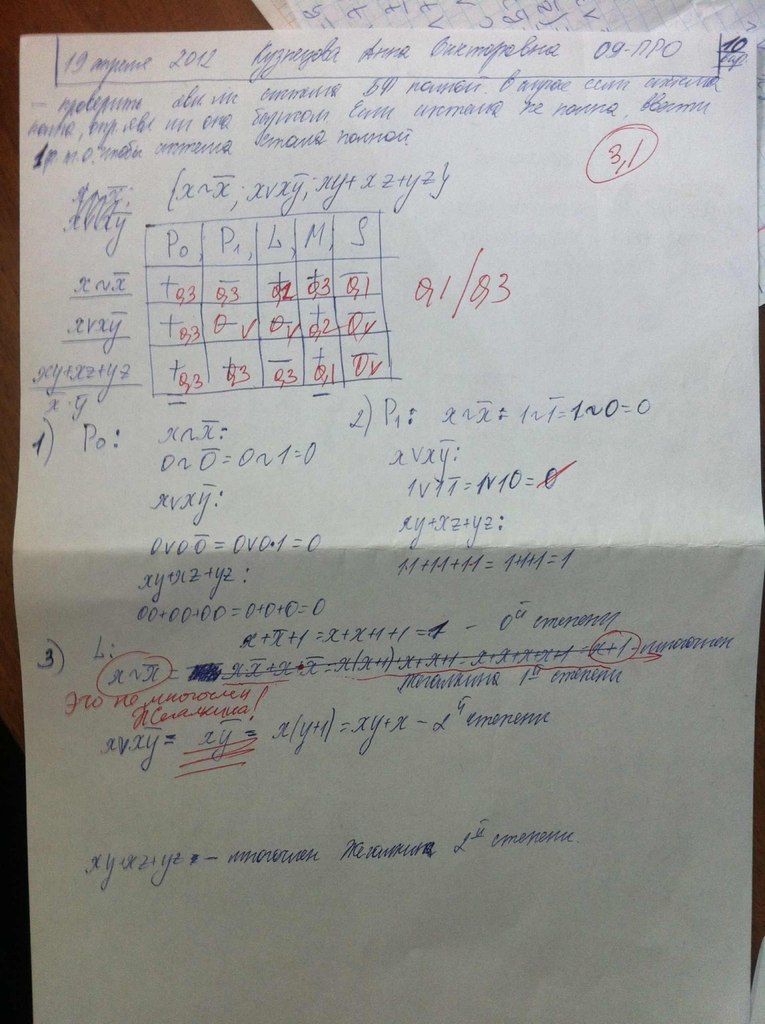 19 апреля 2012 Кузнецова Анна Викторовна 09-ПРО 10 вар
– проверить явл ли система БФ полной. В случае если система
полна, опр. явл ли она базисом. Если система не полна, ввести
1 ф. т.о. чтобы система стала полной.
3,1
{x~x̅; x∨xy̅; xy+xz+yz}
x∨xy̅
P₀, P₁, L, M, S
x~x̅ + 0,3 – 0,3 + 0,1 + 0,3 – 0,1
0,1/0,3
x∨xy̅ + 0,3 0 v 0 v + 0,2 0 v
xy+xz+yz + 0,3 + 0,3 – 0,3 + 0,1 0 v
x̅·y̅
1) P₀: x~x̅:
0~0̅=0~1=0
x∨xy̅:
0∨00̅=0∨0·1=0
xy+xz+yz:
00+00+00=0+0+0=0
2) P₁: x~x̅= 1~1̅=1~0=0
x∨xy̅:
1∨11̅=1∨10=0
xy+xz+yz:
11+11+11=1+1+1=1
3) L: x+x̅+1=x+x+1+1=1 – 0й степени
x~x̅ = xx̅+x·x̅=x(x+1)+x+x+1=x+x+x+x+1=x+1-многочлен
Жегалкина 1й степени
Это не многочлен
Жегалкина!
x∨xy̅= xy̅ = x(y+1)=xy+x – 2й степени
xy+xz+yz – многочлен Жегалкина 2й степени.